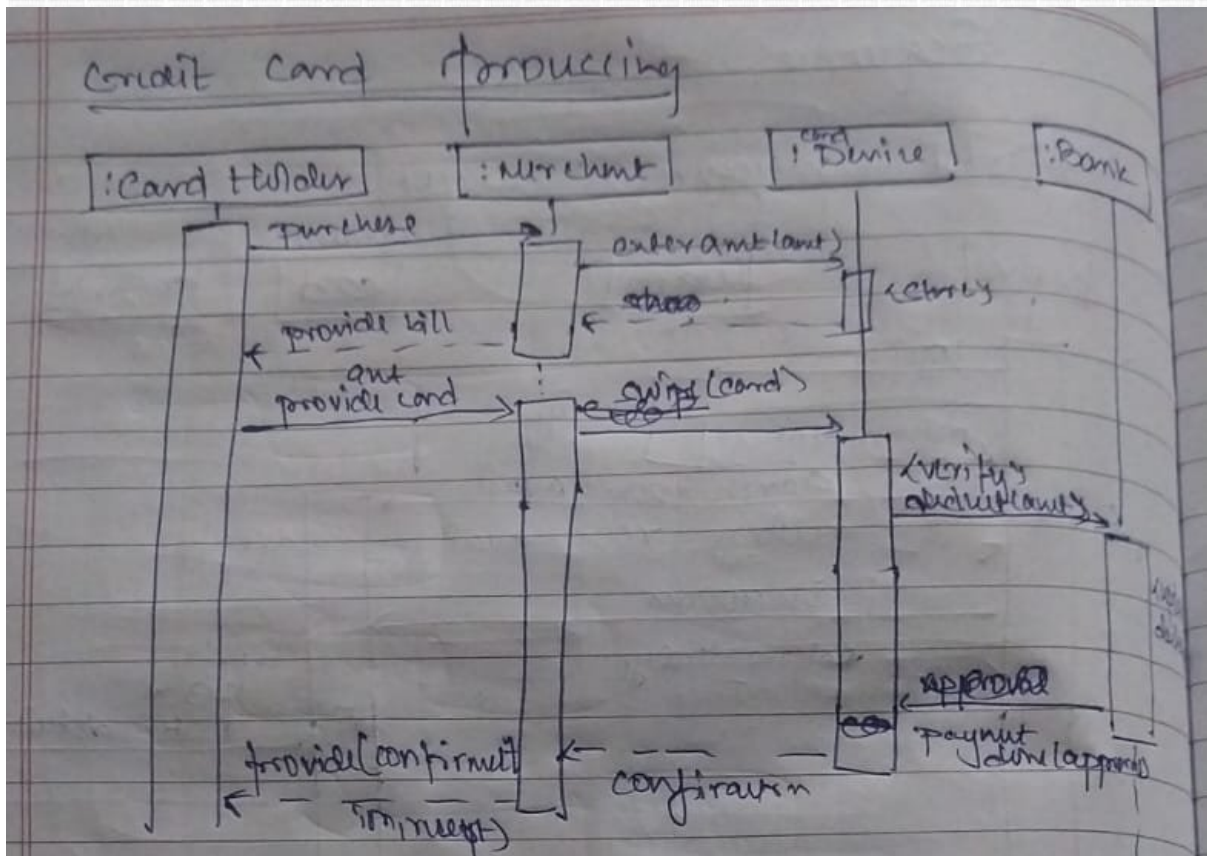 Credit Card Proucccing
:Card Holder
:Merchent
:card Device
:Bank
purchese
enteramt(amt)
provide bill
amt
provide card
swipe(card)
<verify>
deduct(amt)
approval
paymit
done(approved)
confirmation
provide(confirmed